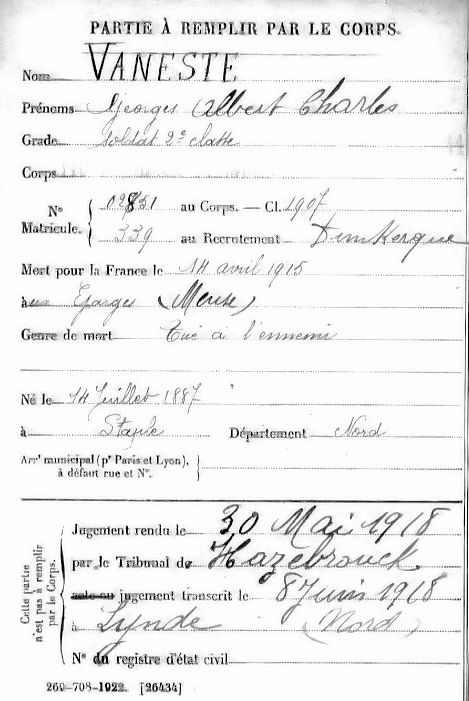 PARTIE À REMPLIR PAR LE CORPS.
Nom VANESTE
Prénoms Georges Albert Charles
Grade soldat 2e classe
Corps
N° 02851 au Corps. — Cl. 1907
Matricule. 339 au Recrutement Dunkerque
Mort pour la France le 14 avril 1915
à aux Eparges (Meuse)
Genre de mort Tué à l'ennemi
Né le 14 Juillet 1887
à Staple Département Nord
Arrt municipal (pr Paris et Lyon),
à défaut rue et N°.
Cette partie
n'est pas à remplir
par le Corps.
Jugement rendu le 30 Mai 1918
par le Tribunal de Hazebrouck
acte ou jugement transcrit le 8 Juin 1918
à Lynde (Nord)
N° du registre d'état civil
260-708-1922. [26434]